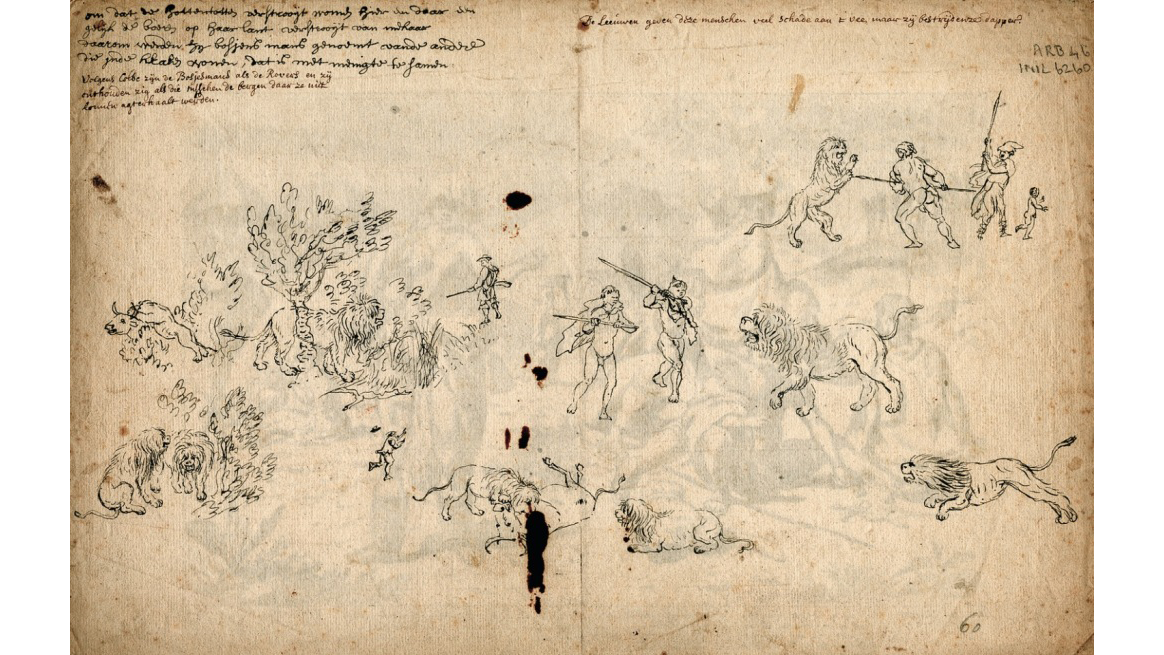 om dat de Hottentotten verstrooyt wonen hier en daar een
gelijk de boeren op haar lant verstrooyt van malkaar
daarom werden zy bossens mans genoemt vande andere
die inde kralen wonen, dat is met menigte te samen
Volgens Colbe zijn de Bosjesmans als de Rovers en zij
onthouden zig als die tusschen de bergen daar ze uit
agterhaalt werden.
De Leeuwen geven deze menschen veel schade aan t vee, maar zij bestrijden ze dapper.
ARB 46
INIL 6260
60